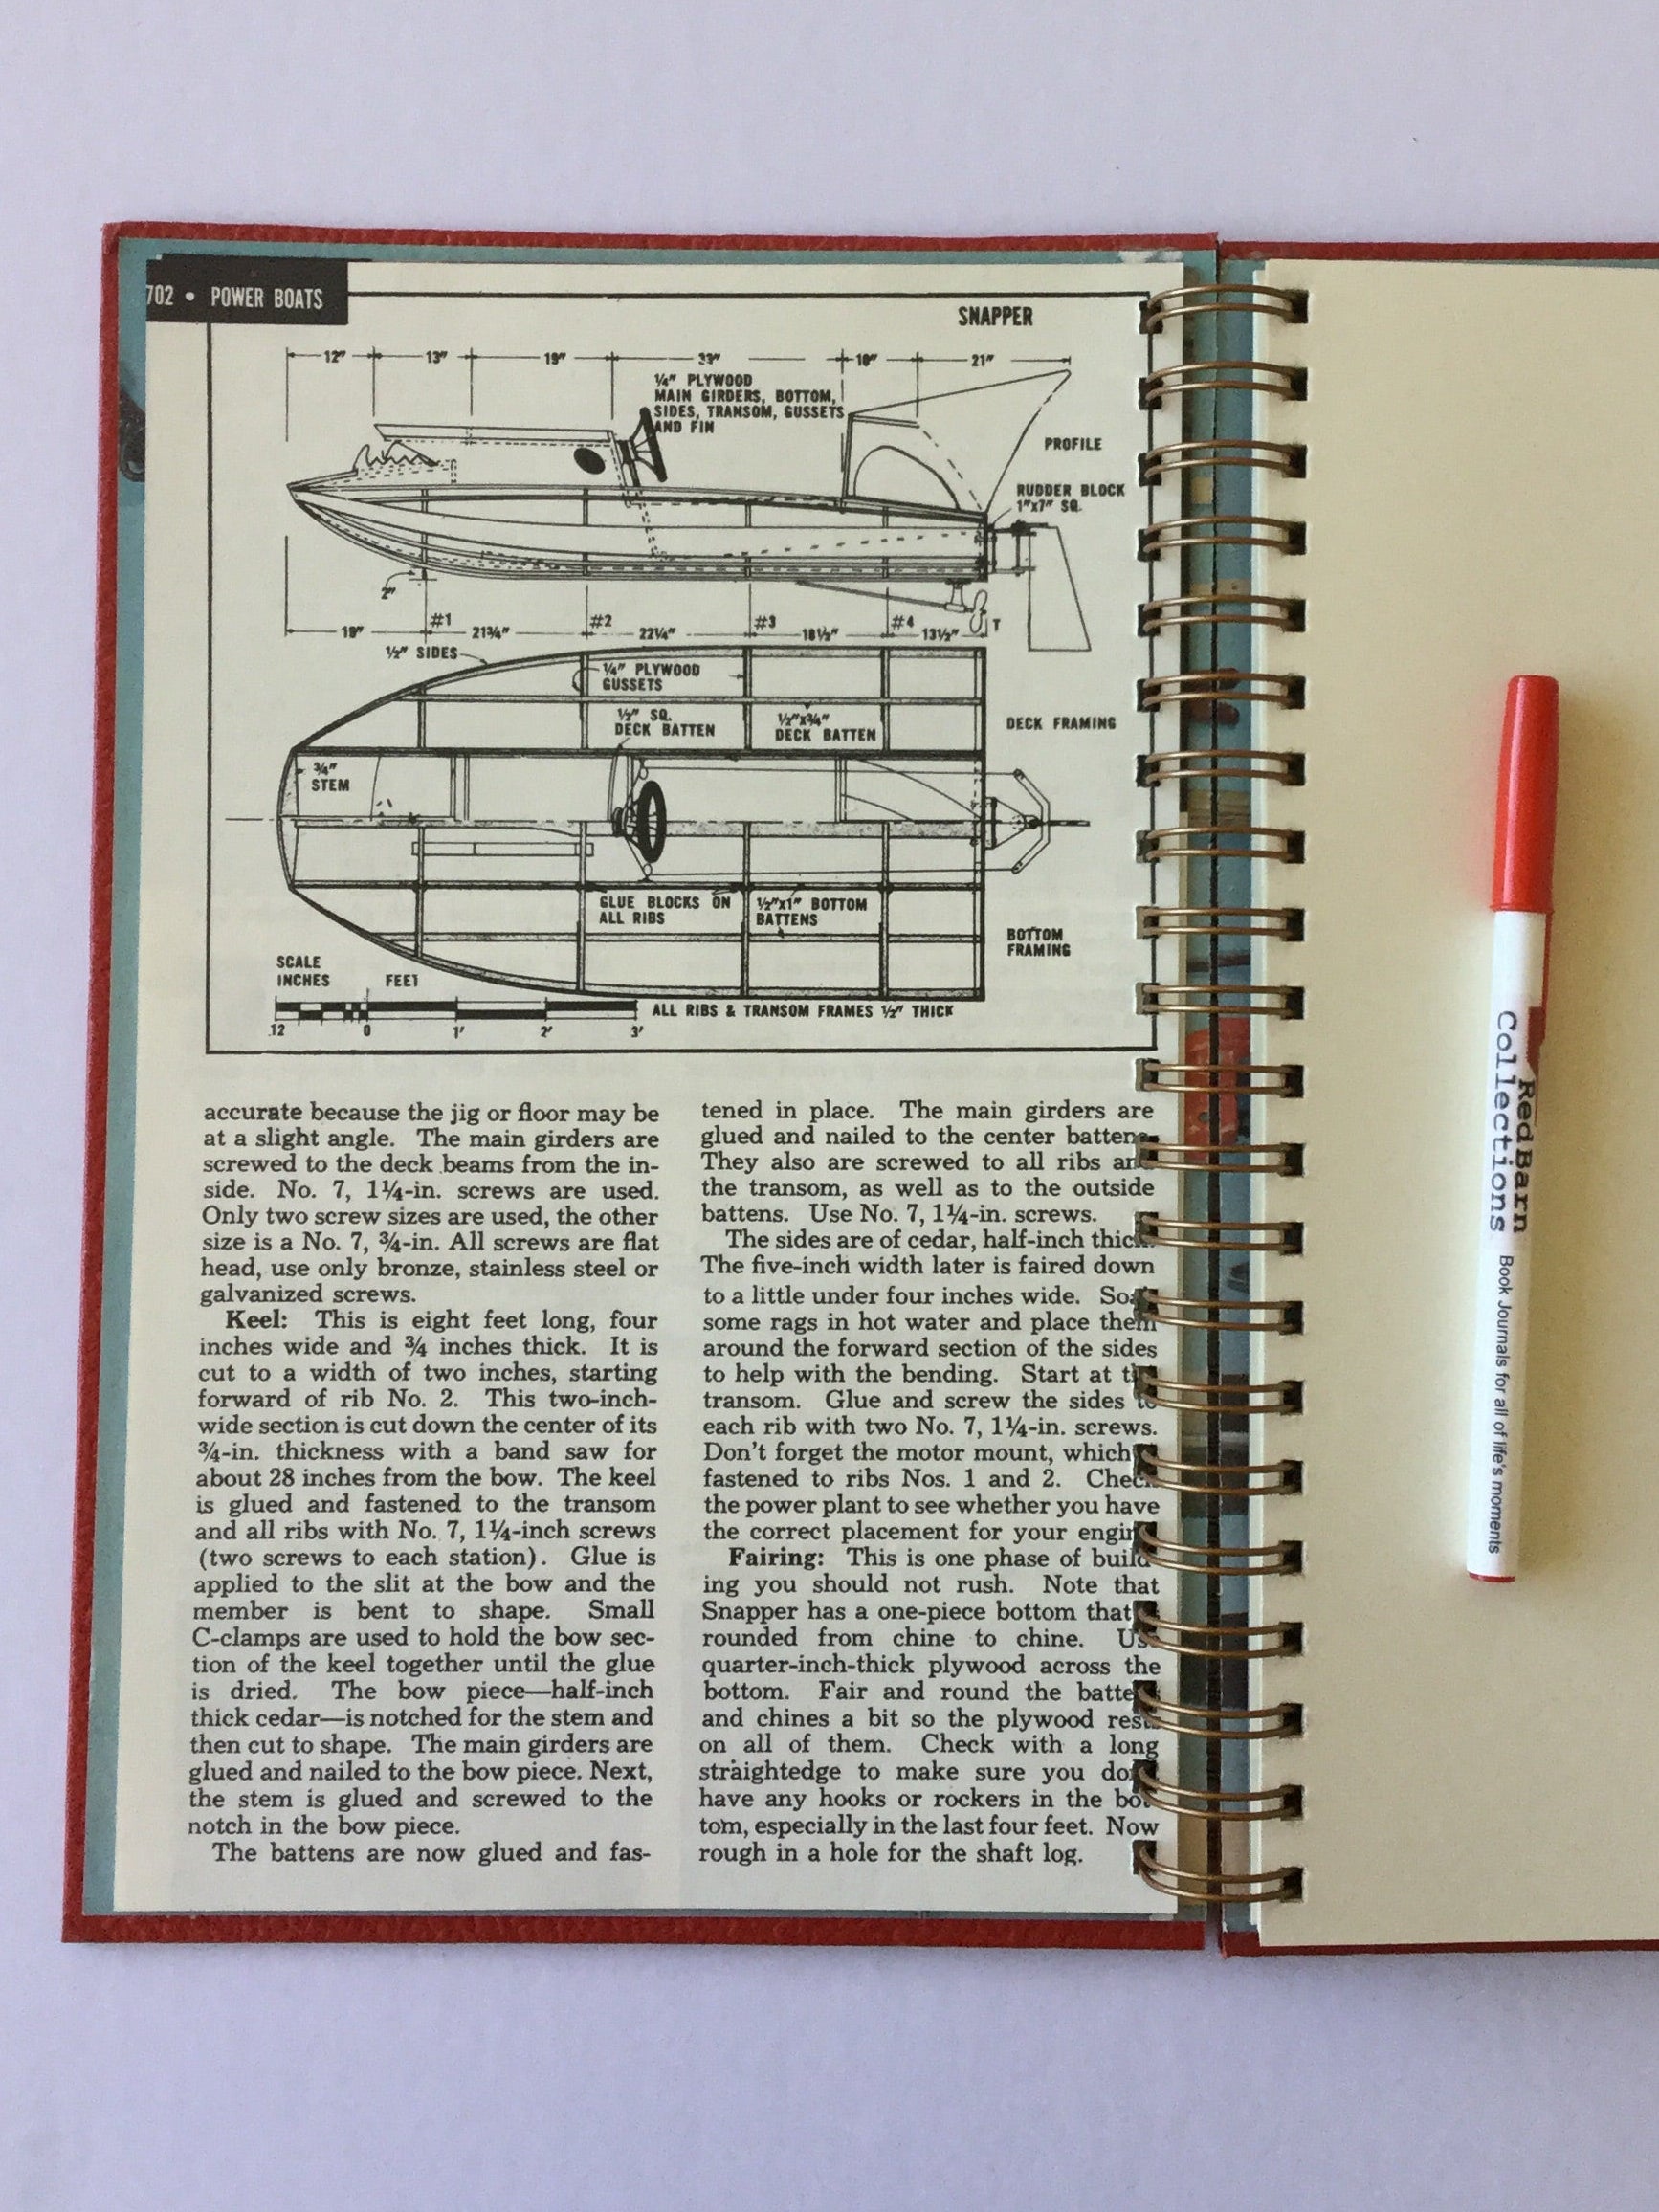 702 • POWER BOATS
SNAPPER
12" 13" 19" 33" 10" 21"
¼" PLYWOOD
MAIN GIRDERS, BOTTOM,
SIDES, TRANSOM, GUSSETS
AND FIN
PROFILE
RUDDER BLOCK
1"x7" SQ.
2"
#1 #2 #3 #4 T
19" 21¾" 22¼" 18½" 13½"
½" SIDES
¼" PLYWOOD
GUSSETS
½" SQ.
DECK BATTEN
½"x¾"
DECK BATTEN
DECK FRAMING
¾"
STEM
GLUE BLOCKS ON
ALL RIBS
½"x1" BOTTOM
BATTENS
BOTTOM
FRAMING
SCALE
INCHES FEET
12 0 1' 2' 3'
ALL RIBS & TRANSOM FRAMES ½" THICK
accurate because the jig or floor may be
at a slight angle. The main girders are
screwed to the deck beams from the in-
side. No. 7, 1¼-in. screws are used.
Only two screw sizes are used, the other
size is a No. 7, ¾-in. All screws are flat
head, use only bronze, stainless steel or
galvanized screws.
Keel: This is eight feet long, four
inches wide and ¾ inches thick. It is
cut to a width of two inches, starting
forward of rib No. 2. This two-inch-
wide section is cut down the center of its
¾-in. thickness with a band saw for
about 28 inches from the bow. The keel
is glued and fastened to the transom
and all ribs with No. 7, 1¼-inch screws
(two screws to each station). Glue is
applied to the slit at the bow and the
member is bent to shape. Small
C-clamps are used to hold the bow sec-
tion of the keel together until the glue
is dried. The bow piece—half-inch
thick cedar—is notched for the stem and
then cut to shape. The main girders are
glued and nailed to the bow piece. Next,
the stem is glued and screwed to the
notch in the bow piece.
The battens are now glued and fas-
tened in place. The main girders are
glued and nailed to the center battens.
They also are screwed to all ribs and
the transom, as well as to the outside
battens. Use No. 7, 1¼-in. screws.
The sides are of cedar, half-inch thick.
The five-inch width later is faired down
to a little under four inches wide. Soak
some rags in hot water and place them
around the forward section of the sides
to help with the bending. Start at the
transom. Glue and screw the sides to
each rib with two No. 7, 1¼-in. screws.
Don't forget the motor mount, which
fastened to ribs Nos. 1 and 2. Check
the power plant to see whether you have
the correct placement for your engin
Fairing: This is one phase of build
ing you should not rush. Note that
Snapper has a one-piece bottom that
rounded from chine to chine. Use
quarter-inch-thick plywood across the
bottom. Fair and round the batte
and chines a bit so the plywood rests
on all of them. Check with a long
straightedge to make sure you don
have any hooks or rockers in the bot
tom, especially in the last four feet. Now
rough in a hole for the shaft log.
Red Barn
Collections Book Journals for all of life's moments